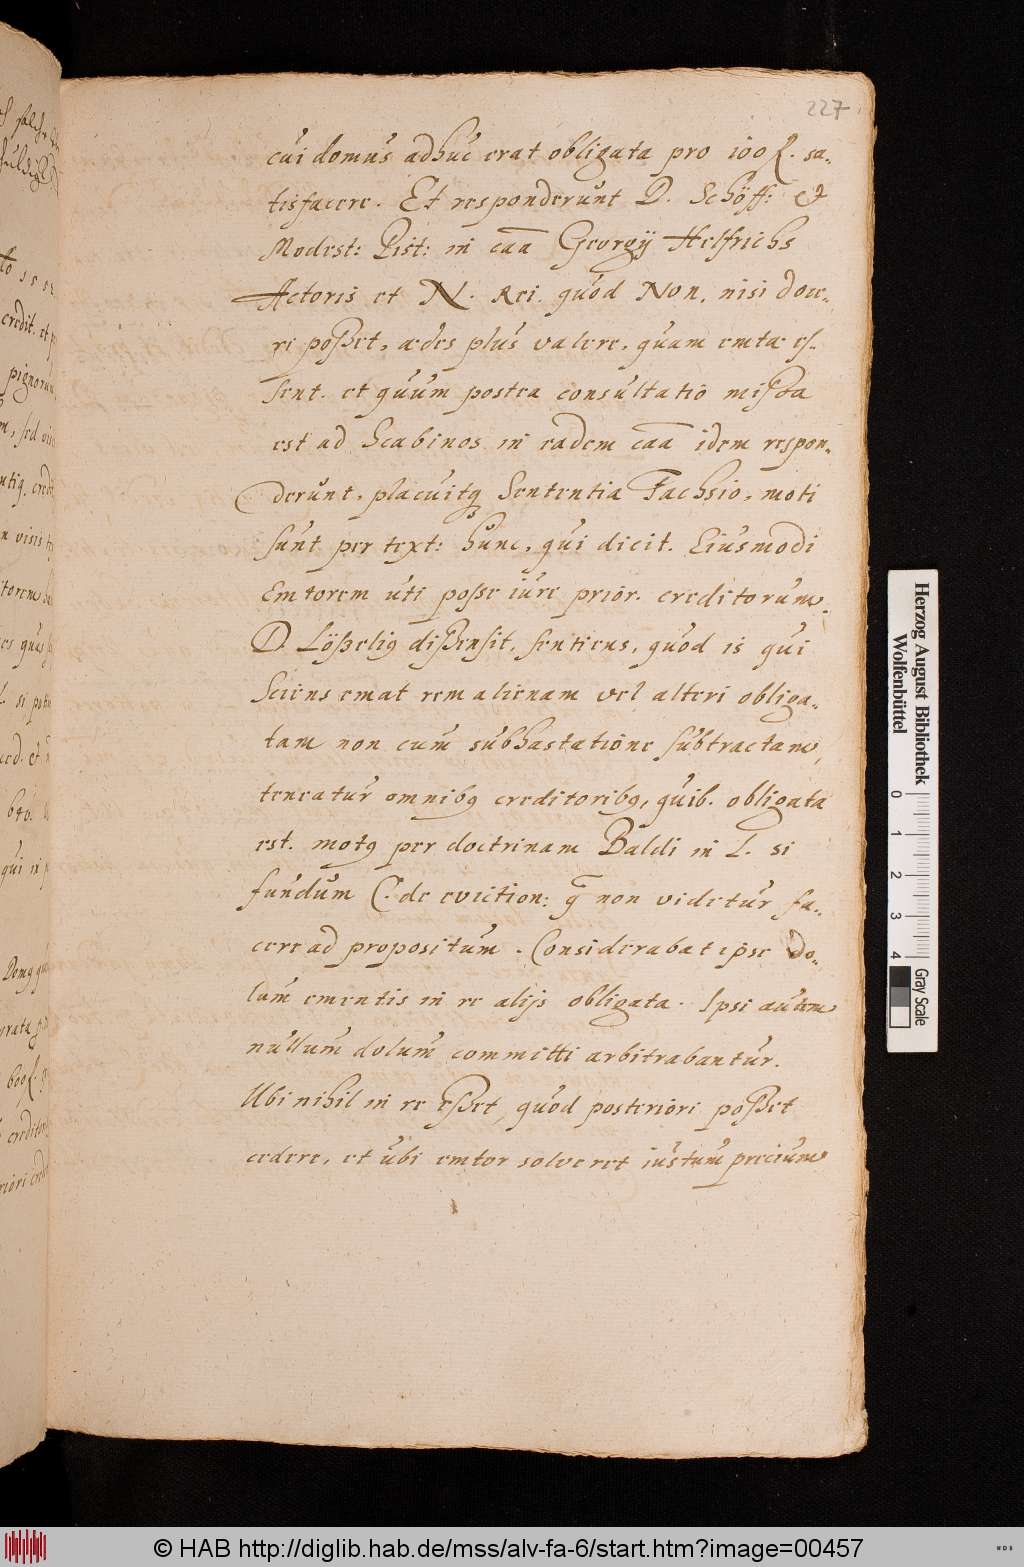 227
cui domus adhuc erat obligata pro 100 f. sa-
tisfacere. Et responderunt D. Schöff: et
Modest: Pist: in caa Georgij Helfrichs
Actoris et N. Rei. quod Non, nisi doce-
ri poßet, ædes plus valere, quam emtæ es-
sent. et quum postea consultatio missa
est ad Scabinos in eadem caa idem respon-
derunt, placuitq Sententia Fachsio, moti
sunt per text: hunc, qui dicit. Eiusmodi
Emtorem uti posse iure prior. creditorum.
D. Lößelig dißensit, sentiens, quod is qui
Sciens emat rem alienam vel alteri obliga-
tam non cum subhastatione subtractam,
teneatur omnibꝰ creditoribꝰ, quib. obligata
est. motꝰ per doctrinam Baldi in L. si
fundum C. de eviction: q̄ non videtur fa-
cere ad propositum. Considerabat ipse do-
lum ementis in re alijs obligata. Ipsi autem
nullum dolum committi arbitrabantur.
Ubi nihil in re eßet, quod posteriori poßet
cedere, et ubi emtor solveret iustum precium
to 1552
credit. et
pignorum
sed
credit
n visis
torem
qui in
creditor
Herzog August Bibliothek
Wolfenbüttel
0 1 2 3 4
Gray Scale
© HAB http://diglib.hab.de/mss/alv-fa-6/start.htm?image=00457